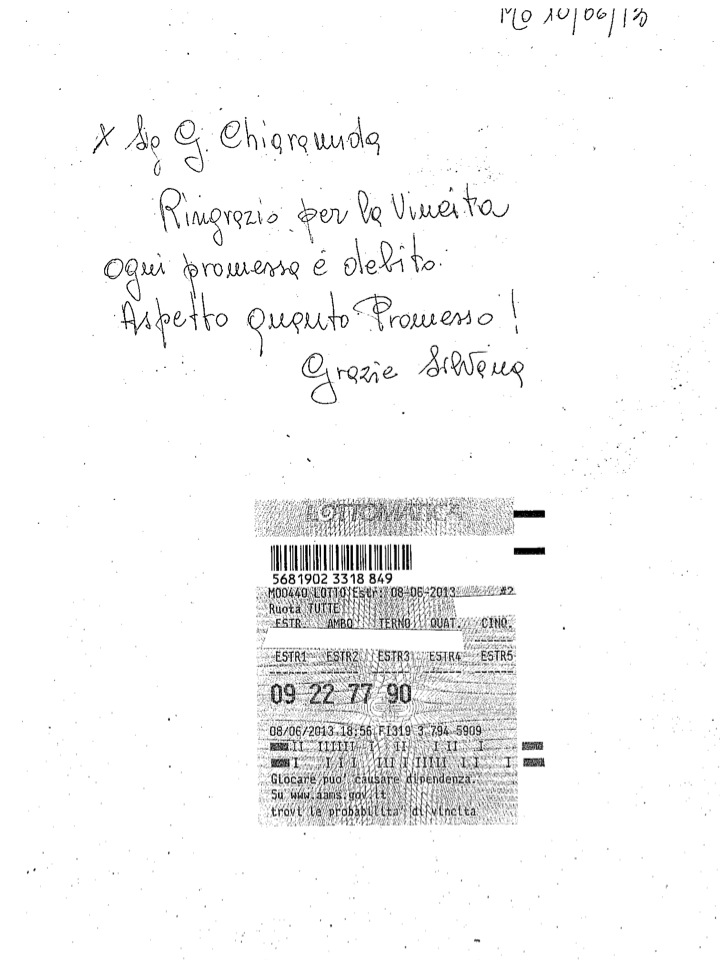 MO 10/06/13
X Sig G. Chiaramida
Ringrazio per la Vincita
ogni promessa è debito.
Aspetto quanto Promesso!
Grazie Silvana
LOTTOMATICA
5681902 3318 849
MO0440 LOTTO Estr: 08-06-2013 #2
Ruota TUTTE
ESTR. AMBO TERNO QUAT. CINQ.
ESTR1 ESTR2 ESTR3 ESTR4 ESTR5
09 22 77 90
08/06/2013 18:56 FI319 3 794 5909
Giocare puo' causare dipendenza.
Su www.aams.gov.it
trovi le probabilita' di vincita